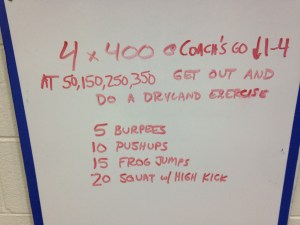 4 x 400 @ COACH'S GO ↓1-4
AT 50,150,250,350 GET OUT AND
DO A DRYLAND EXERCISE
5 BURPEES
10 PUSHUPS
15 FROG JUMPS
20 SQUAT W/ HIGH KICK